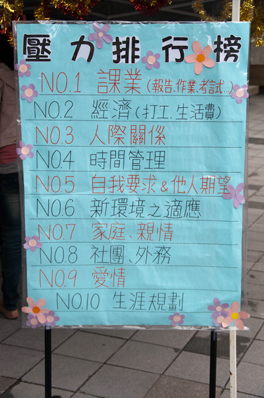 壓力排行榜
NO.1 課業(報告、作業、考試)
NO.2 經濟(打工、生活費)
NO.3 人際關係
NO.4 時間管理
NO.5 自我要求&他人期望
NO.6 新環境之適應
NO.7 家庭、親情
NO.8 社團、外務
NO.9 愛情
NO.10 生涯規劃